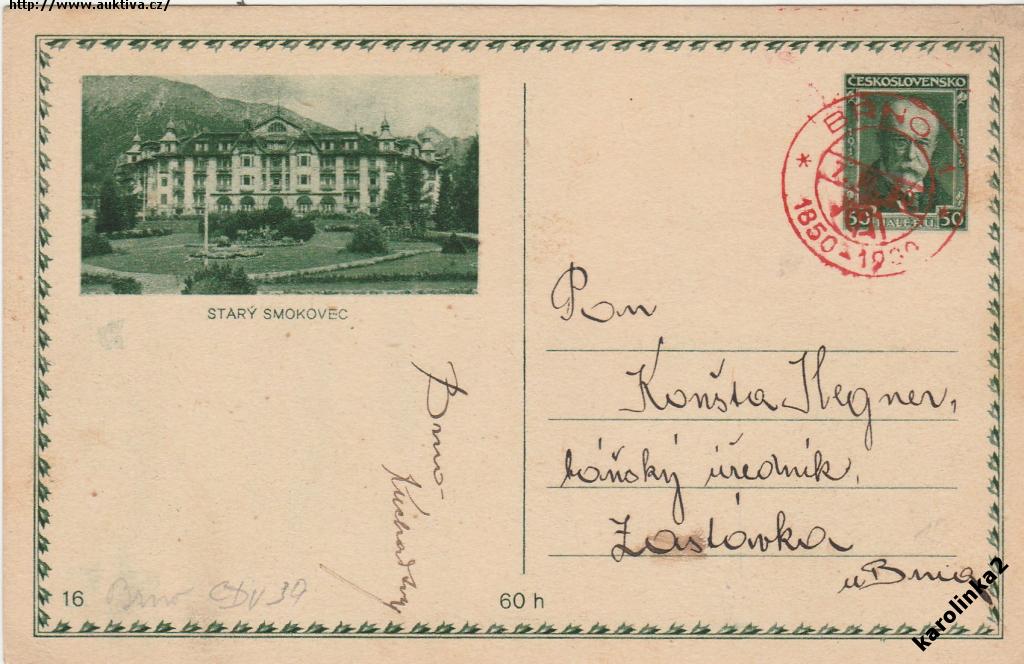 http://www.auktiva.cz/
ČESKOSLOVENSKO
BRNO
1850-19
50 HALÉŘŮ 50
STARÝ SMOKOVEC
Pan
Konšta Hegner,
báňský úředník,
Zastávka
u Brna
Brno
16
Brno CDV 39
60 h
karolinka2